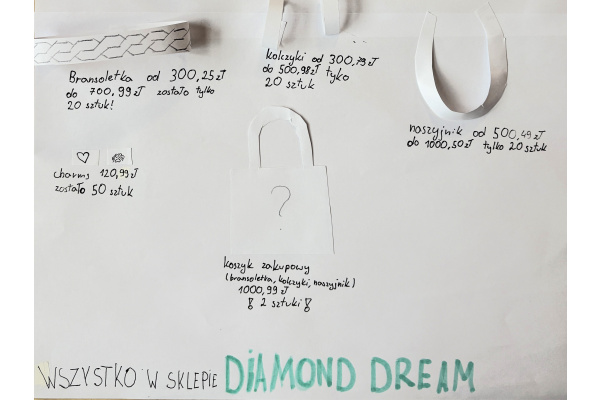 Bransoletka od 300,25zł
do 700,99zł zostało tylko
20 sztuk!
kolczyki od 300,79zł
do 500,98zł tyko
20 sztuk
naszyjnik od 500,49zł
do 1000,50zł tylko 20sztuk
charms 120,99zł
zostało 50 sztuk
?
koszyk zakupowy
(bransoletka, kolczyki, naszyjnik)
1000,99zł
! 2 sztuki !
WSZYSTKO W SKLEPIE DIAMOND DREAM